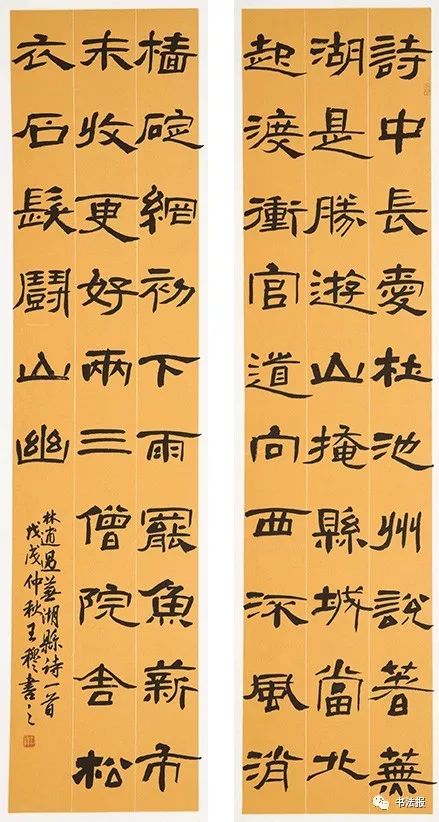 詩中長愛杜池州說著蕪
湖是勝遊山掩縣城當北
起渡衝官道向西流風消
檣碇網初下雨罷魚薪市
未收更好兩三僧院舍松
衣石髮鬪山幽
林逋過蕪湖縣詩一首
戊戌仲秋王穆書之
书法报